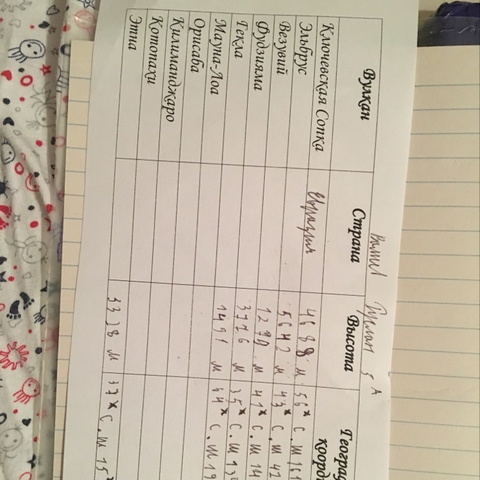 5 А
Вулкан Страна Высота Географ
коорд
Ключевская Сопка Евразия 4688 м 56° с.ш 161
Эльбрус 5642 м 43° с.ш 42
Везувий м 41° с.ш 14
Фудзияма 3776 м 35° с.ш
Гекла 1491 м 64° с.ш 19
Мауна-Лоа
Орисаба
Килиманджаро
Котопахи
Этна 3328 м 37° с.ш 15°